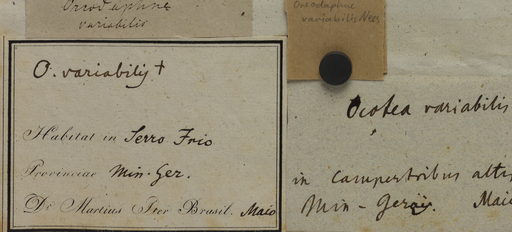 Oreodaphne
variabilis
O. variabilis †
Habitat in Serro Frio
Provinciae Min. Ger.
Dr. Martius Iter Brasil. Maio
Oreodaphne
variabilis Nees
Ocotea variabilis
in campestribus altis
Min - Geraës. Maio